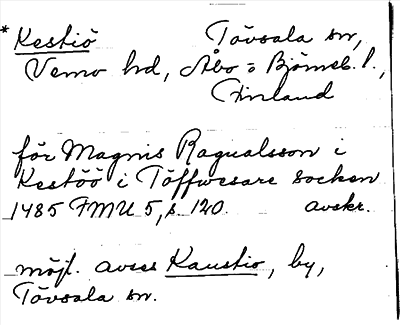 * Kestiö Tövsala sn,
Vemo hd, Åbo = Björneb. l.,
Finland
för Magnis Ragualsson i
Kestöö i Töffwesare socken
1485 FMU 5, s. 120. avskr.
möjl. avses Kaustio, by,
Tövsala sn.